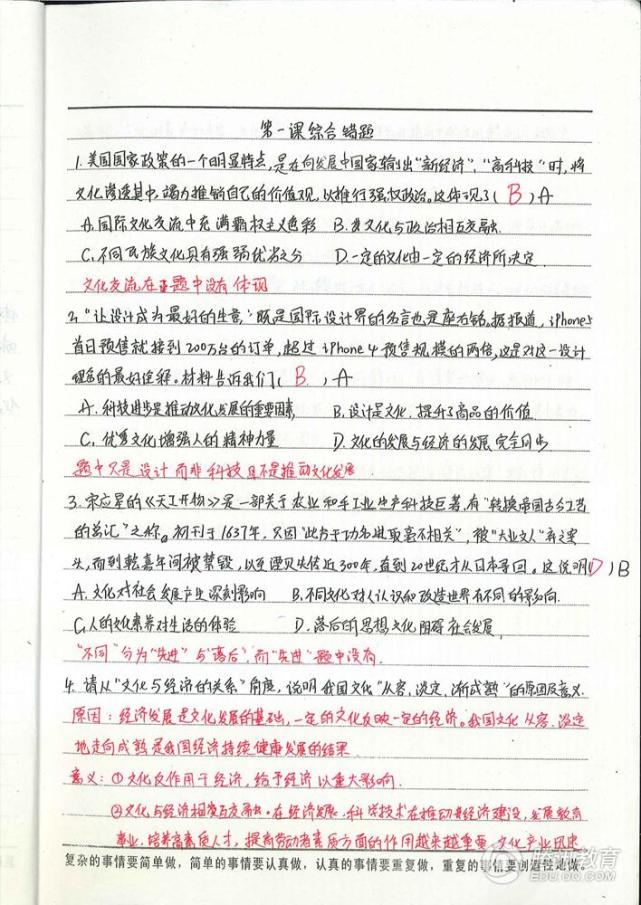 第一课综合错题
1.美国国家政策的一个明显特点,是在向发展中国家输出“新经济”、“高科技”时,将
文化渗透其中,竭力推销自己的价值观,以推行强权政治。这体现了( B )A
A.国际文化交流中充满霸权主义色彩 B.文化与政治相互交融.
C.不同民族文化具有强弱优劣之分 D.一定的文化由一定的经济所决定.
文化交流在本题中没有体现
2.“让设计成为最好的生意,”既是国际设计界的名言也是座右铭。据报道,iPhone5
首日预售就接到200万台的订单,超过iPhone4预售规模的两倍,这是对这一设计
理念的最好诠释。材料告诉我们( B )A
A.科技进步是推动文化发展的重要因素 B.设计是文化,提升了商品的价值.
C.优秀文化增强人的精神力量 D.文化的发展与经济的发展完全同步
题中只是设计而非科技且不是推动文化发展
3.宋应星的《天工开物》是一部关于农业和手工业生产科技巨著,有“转换帝国古今工艺
的总汇”之称。初刊于1637年,只因“此书于功名进取毫不相关”,被“大业文人”弃之案
头,而到乾嘉年间被禁毁,以至湮灭失传近300年,直到20世纪才从日本寻回。这说明(D)B
A.文化对社会发展产生深刻影响 B.不同文化对人认识和改造世界有不同的影响.
C.人的文化素养对生活的体验 D.落后的思想文化阻碍社会发展.
“不同”分为“先进”与“落后”,而“先进”题中没有.
4.请从“文化与经济的关系”角度,说明我国文化“从容、淡定、渐成熟”的原因及意义.
原因:经济发展是文化发展的基础,一定的文化反映一定的经济。我国文化从容、淡定
地走向成熟是我国经济持续健康发展的结果.
意义:①文化反作用于经济,给予经济以重大影响.
②文化与经济相互交融。在经济发展中科学技术在推动经济建设,发展教育
事业、培养高素质人才,提高劳动者素质方面的作用越来越重要.文化产业迅速
复杂的事情要简单做,简单的事情要认真做,认真的事情要重复做,重复的事情要创造性地做。
腾讯教育
EDU.QQ.COM